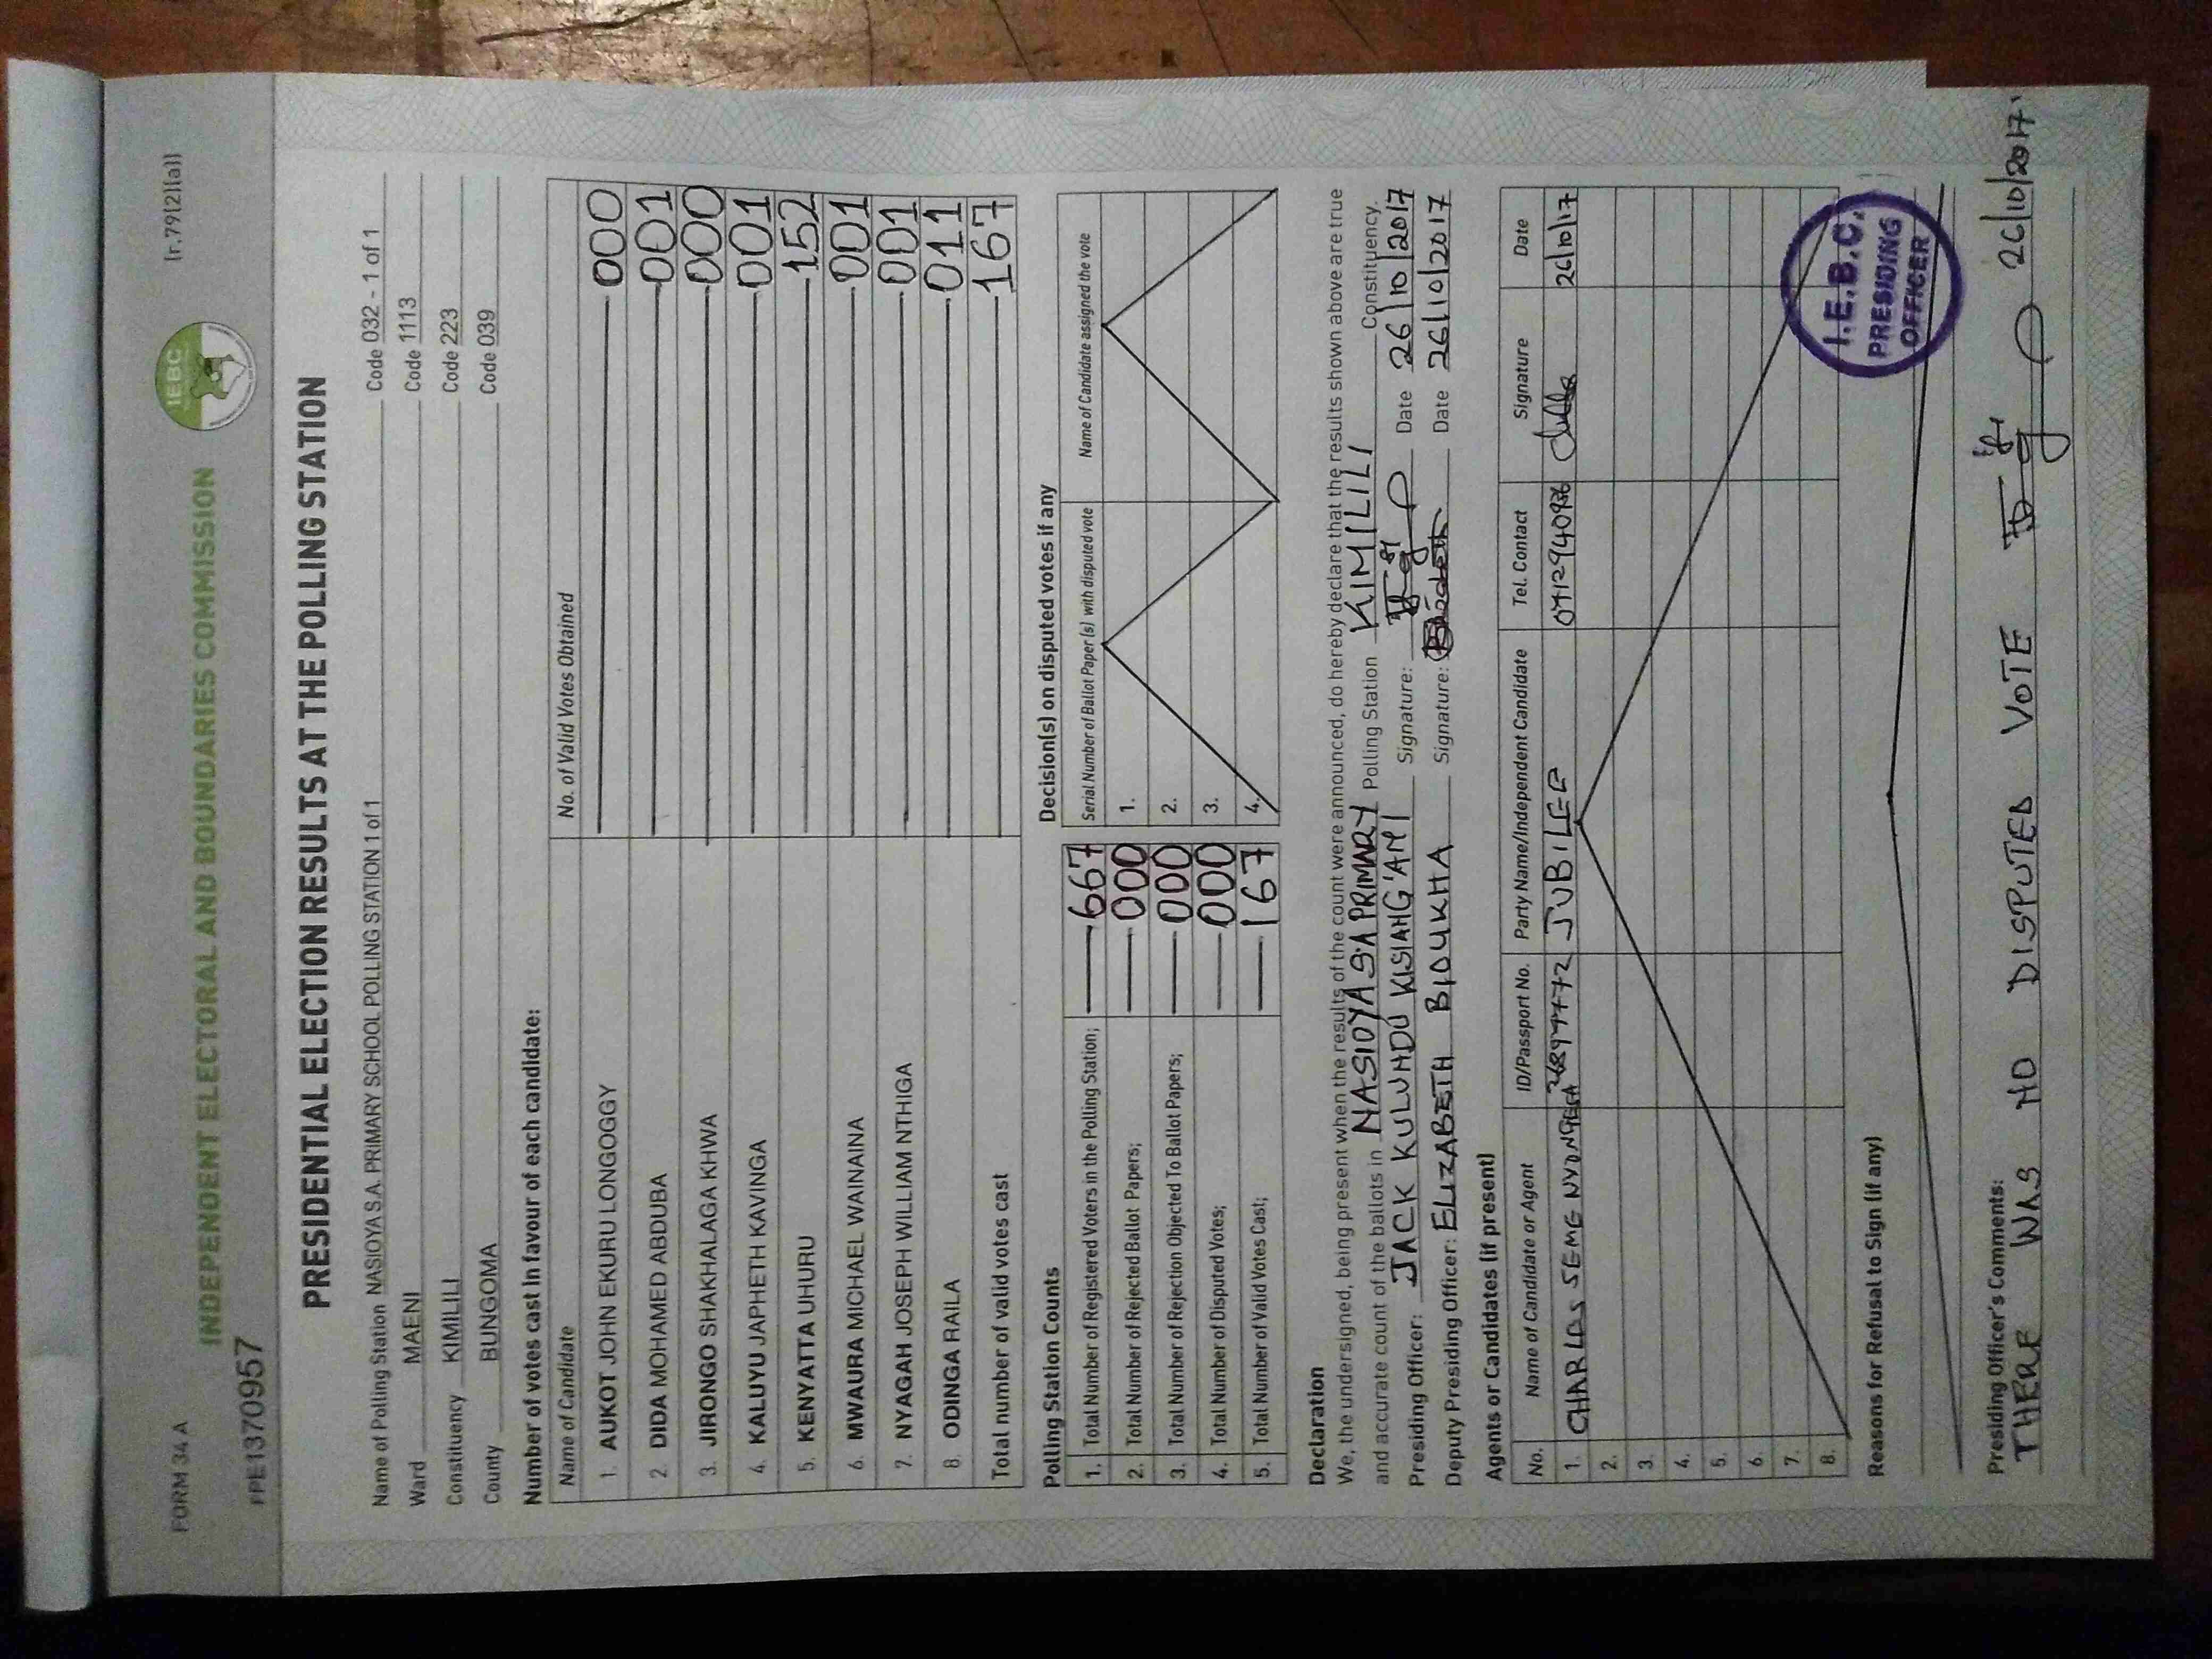 FORM 34 A
(r.79(2)(a))
INDEPENDENT ELECTORAL AND BOUNDARIES COMMISSION
IEBC
PRESIDENTIAL ELECTION RESULTS AT THE POLLING STATION
Name of Polling Station NASIOYA S.A. PRIMARY SCHOOL POLLING STATION 1 of 1 Code 032 - 1 of 1
Ward MAENI Code 1113
Constituency KIMILILI Code 223
County BUNGOMA Code 039
Number of votes cast in favour of each candidate:
Name of Candidate No. of Valid Votes Obtained
1. AUKOT JOHN EKURU LONGOGGY 000
2. DIDA MOHAMED ABDUBA 001
3. JIRONGO SHAKHALAGA KHWA 000
4. KALUYU JAPHETH KAVINGA 001
5. KENYATTA UHURU 152
6. MWAURA MICHAEL WAINAINA 001
7. NYAGAH JOSEPH WILLIAM NTHIGA 001
8. ODINGA RAILA 011
Total number of valid votes cast 167
Polling Station Counts
1. Total Number of Registered Voters in the Polling Station; 667
2. Total Number of Rejected Ballot Papers; 000
3. Total Number of Rejection Objected To Ballot Papers; 000
4. Total Number of Disputed Votes; 000
5. Total Number of Valid Votes Cast; 167
Decision(s) on disputed votes if any
Serial Number of Ballot Paper (s) with disputed vote Name of Candidate assigned the vote
1.
2.
3.
4.
Declaration
We, the undersigned, being present when the results of the count were announced, do hereby declare that the results shown above are true
and accurate count of the ballots in NASIOYA S.A PRIMARY Polling Station KIMILILI Constituency.
Presiding Officer: JACK KULUNDU KISIANG'ANI Signature: Date 26/10/2017
Deputy Presiding Officer: ELIZABETH Signature: Date 26/10/2017
Agents or Candidates (if present)
No. Name of Candidate or Agent ID/Passport No. Party Name/Independent Candidate Tel. Contact Signature Date
1. CHARLES SEME JUBILEE 26/10/17
2.
3.
4.
5.
6.
7.
8.
I.E.B.C.
PRESIDING
OFFICER
Reasons for Refusal to Sign (if any)
Presiding Officer's Comments:
THERE WAS NO DISPUTED VOTE 26/10/2017